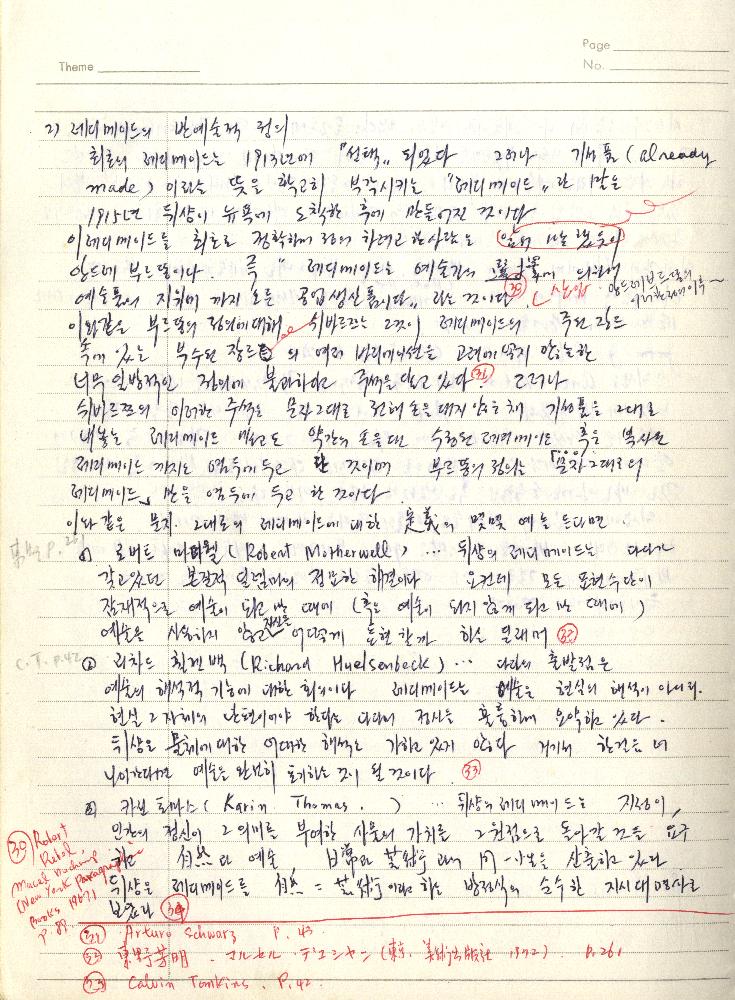 Page
Theme
No.
2) 레디메이드의 반예술적 정의
최초의 레디메이드는 1913년에 『선택』 되었다 그러나 기성품 (already
made) 이라는 뜻을 확고히 부각시키는 "레디메이드" 란 말은
1915년 뒤샹이 뉴욕에 도착한 후에 만들어진 것이다
이 레디메이드를 최초로 정확하게 정의 하려고 한 사람은
앙드레 부르똥이다. 즉 " 레디메이드는 예술가의 選擇에 의하여
예술품의 지위에 까지 오른 공업생산품이다" 라는 것이다 ㉚ 삽입
앙드레 브르똥의
이러한 정의 이후~
이와같은 부르똥의 정의에 대해 쉬바르쯔는 그것이 레디메이드의 주된 장르
속에 있는 부수된 장르 의 여러 바리에이션을 고려에 넣지 않는
너무 일방적인 정의에 불과하다고 주석을 달고 있다 ㉛ 그러나
쉬바르쯔의 이러한 주석은 문자그대로 전혀 손을 대지 않은 채 기성품을 그대로
내놓는 레디메이드 약간의 손을 댄 수정된 레디메이드 혹은 복사된
레디메이드 까지도 염두에 두고 한 것이며 부르똥의 정의는 「문자 그대로의
레디메이드」만을 염두에 두고 한 것이다
이와 같은 문자 그대로의 레디메이드에 대한 定義의 몇몇 예를 든다면.
P. 261
① 로버트 마더웰 (Robert Motherwell) … 뒤샹의 레디메이드는 다다가
갖고있던 본질적 딜렘마의 정묘한 해결이다 요컨데 모든 표현수단이
잠재적으로 예술이 되고 만 때에 (혹은 예술이 되지 않게 되고 만 때에)
예술은 사용하지 않고 자신을 어떻게 표현할까 하는 문제며 ㉜
C.T. p.42
② 리차드 휠젠백 (Richard Huelsenbeck) … 다다의 출발점은
예술의 해석적 기능에 대한 회의이다 레디메이드는 예술은 현실의 해석이 아니라.
현실 그 자체의 단편이어야 한다는 다다의 정신을 훌륭하게 요약하고 있다.
뒤샹은 물체에 대한 어떠한 해석도 가하고 있지 않다 거기서 한걸음 더
나아간다면 예술은 완벽히 포기하는 것이 될 것이다 ㉝
③ 카린 토마스 (Karin Thomas. ) … 뒤샹의 레디메이드는 지성이,
인간의 정신이 그 의미를 부여한 사물의 가치를 그 원점으로 돌아갈 것을 요구
하고 自然과 예술 日常과 芸術 과의 同一性을 산출하고 있다
뒤샹은 레디메이드를 自然 = 芸術 이라 하는 방정식의 순수한 지시대명사로
보았다 ㉞
㉚ Robert
Lebel
Marcel Duchamp
(New York Paragraphic
Books 1967)
P. 89.
㉛ Arturo Schwarz P. 43
㉜ 東野芳明. マルセル・デュシャン (東京, 美術出版社 1972). p. 261
㉝ Calvin Tomkins. P.42.